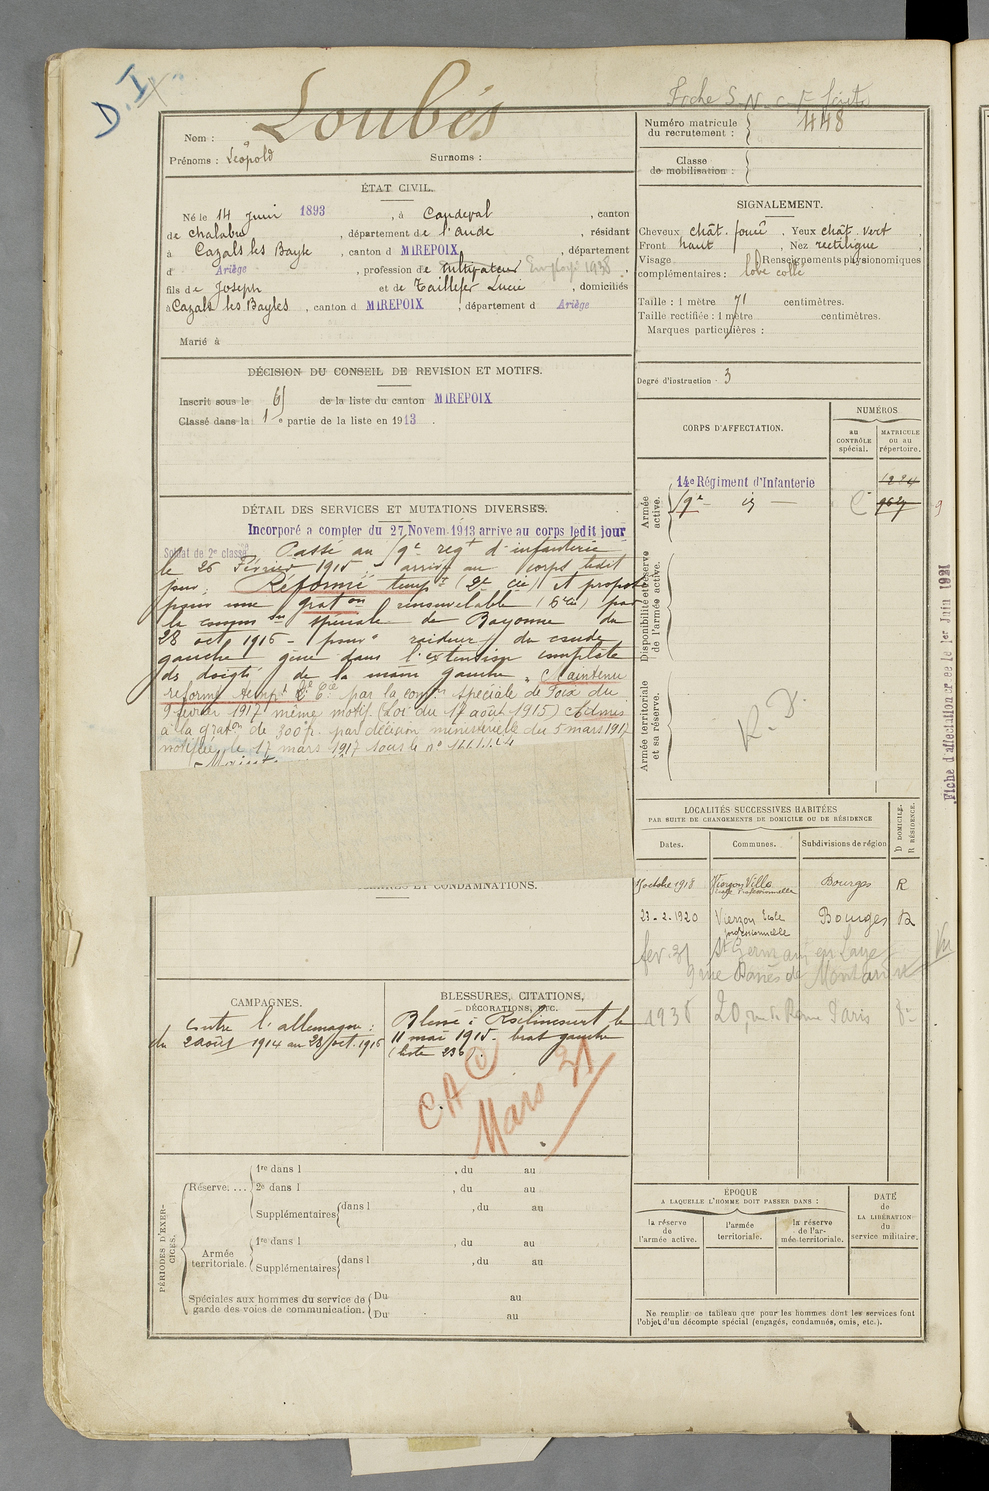 D.I
Loubès
Nom :
Prénoms : Léopold Surnoms :
ÉTAT CIVIL.
Né le 14 juin 1893, à Caudeval, canton
de Chalabre, département de l'Aude, résidant
à Cazals les Bayle, canton d MIREPOIX, département
d Ariège, profession de cultivateur Employé 1938.
fils de Joseph et de Taillefer Lucie, domiciliés
à Cazals les Bayles, canton d MIREPOIX, département d Ariège
Marié à
DÉCISION DU CONSEIL DE REVISION ET MOTIFS.
Inscrit sous le 6 de la liste du canton MIREPOIX
Classé dans la 1e partie de la liste en 1913.
DÉTAIL DES SERVICES ET MUTATIONS DIVERSES.
Incorporé a compter du 27 Novem. 1913 arrive au corps ledit jour
Soldat de 2e classe Passé au 9e regt d'infanterie
le 26 Février 1915, arrivé au corps ledit
jour. Réformé tempre (2e Cie) et proposé
pour une graton renouvelable (6 Cie) par
la common spéciale de Bayonne du
28 oct 1916 - pour raideur du coude
gauche gêne dans l'extension complète
ds doigts de la main gauche. Maintenu
réformé tempt 2e Cie par la comon spéciale de Foix du
9 février 1917 même motif (Loi du 17 août 1915) Admis
à la graton de 300 f. par décision ministérielle du 5 mars 1917
notifiée le 17 mars 1917 sous le n°
ET CONDAMNATIONS.
CAMPAGNES.
Contre l'allemagne :
du 2 août 1914 au 28 oct. 1916
BLESSURES, CITATIONS,
DÉCORATIONS, ETC.
Blessé à Roclincourt le
11 mai 1915 - bras gauche
(liste 236).
CAC
Mars 31
PÉRIODES D'EXERCICES.
Réserve....
1re dans l , du au
2e dans l , du au
Supplémentaires dans l , du au
Armée territoriale.
1re dans l , du au
Supplémentaires dans l , du au
Spéciales aux hommes du service de garde des voies de communication.
Du au
Du au
Numéro matricule du recrutement : 448
Classe de mobilisation :
SIGNALEMENT.
Cheveux chât. foncé. Yeux chât. vert
Front haut, Nez rectiligne
Visage Renseignements physionomiques
complémentaires : lobe collé
Taille : 1 mètre 71 centimètres.
Taille rectifiée : 1 mètre centimètres.
Marques particulières :
Degré d'instruction 3
CORPS D'AFFECTATION.
NUMÉROS
au CONTRÔLE spécial.
MATRICULE ou au répertoire.
Armée active.
14e Régiment d'Infanterie
9e
Disponibilité et réserve de l'armée active.
Armée territoriale et sa réserve.
R.D.
Fiche d'affectation créée le 1er Juin 1921
LOCALITÉS SUCCESSIVES HABITÉES
PAR SUITE DE CHANGEMENTS DE DOMICILE OU DE RÉSIDENCE
Dates. Communes. Subdivisions de région. D DOMICILE. R RÉSIDENCE.
octobre 1918 Vierzon Ville Bourges R
école Professionnelle
23-2-1920 Vierzon École Bourges R
professionnelle
fev. 31 St Germain en Laye
9 rue
1938 20, rue de Paris
ÉPOQUE
A LAQUELLE L'HOMME DOIT PASSER DANS :
la réserve de l'armée active.
l'armée territoriale.
la réserve de l'armée territoriale.
DATE de LA LIBÉRATION du service militaire.
Ne remplir ce tableau que pour les hommes dont les services font
l'objet d'un décompte spécial (engagés, condamnés, omis, etc.).